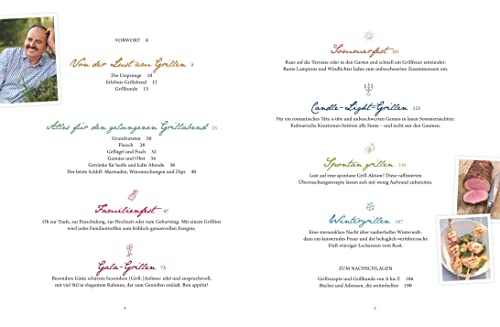 VORWORT 6
Von der Lust am Grillen 9
Die Ursprünge 10
Erlebnis Grillabend 11
Grillkunde 13
Alles für den gelungenen Grillabend 25
Grundzutaten 26
Fleisch 28
Geflügel und Fisch 32
Gemüse und Obst 34
Getränke für heiße und kalte Abende 36
Der letzte Schliff: Marinaden, Würzmischungen und Dips 40
Familienfest 47
Ob zur Taufe, zur Einschulung, zur Hochzeit oder zum Geburtstag: Mit einem Grillfest
wird jedes Familientreffen zum fröhlich-genussvollen Ereignis.
Gala-Grillen 75
Besondere Gäste schätzen besondere (Grill-)Anlässe: edel und anspruchsvoll,
mit viel Stil in elegantem Rahmen, der zum Genießen einlädt. Bon appétit!
Sommerfest
Raus auf die Terrasse oder in den Garten und schnell ein Grillfeuer entzündet:
Bunte Lampions und Windlichter laden zum unbeschwerten Zusammensein ein.
Candle-Light-Grillen
Für ein romantisches Tête-à-tête und unbeschwerten Genuss in lauen Sommernächten.
Kulinarische Kreationen betören alle Sinne – und nicht nur den Gaumen.
Spontan grillen
Lust auf eine spontane Grill-Aktion? Diese raffinierten
Überraschungsrezepte lassen sich mit wenig Aufwand zubereiten.
Wintergrillen 167
Eine sternenklare Nacht über zauberhafter Winterwelt:
dazu ein knisterndes Feuer und der behaglich-verführerische
Duft würziger Leckereien vom Rost.
ZUM NACHSCHLAGEN
Grillrezepte und Grillkunde von A bis Z 186
Bücher und Adressen, die weiterhelfen 190